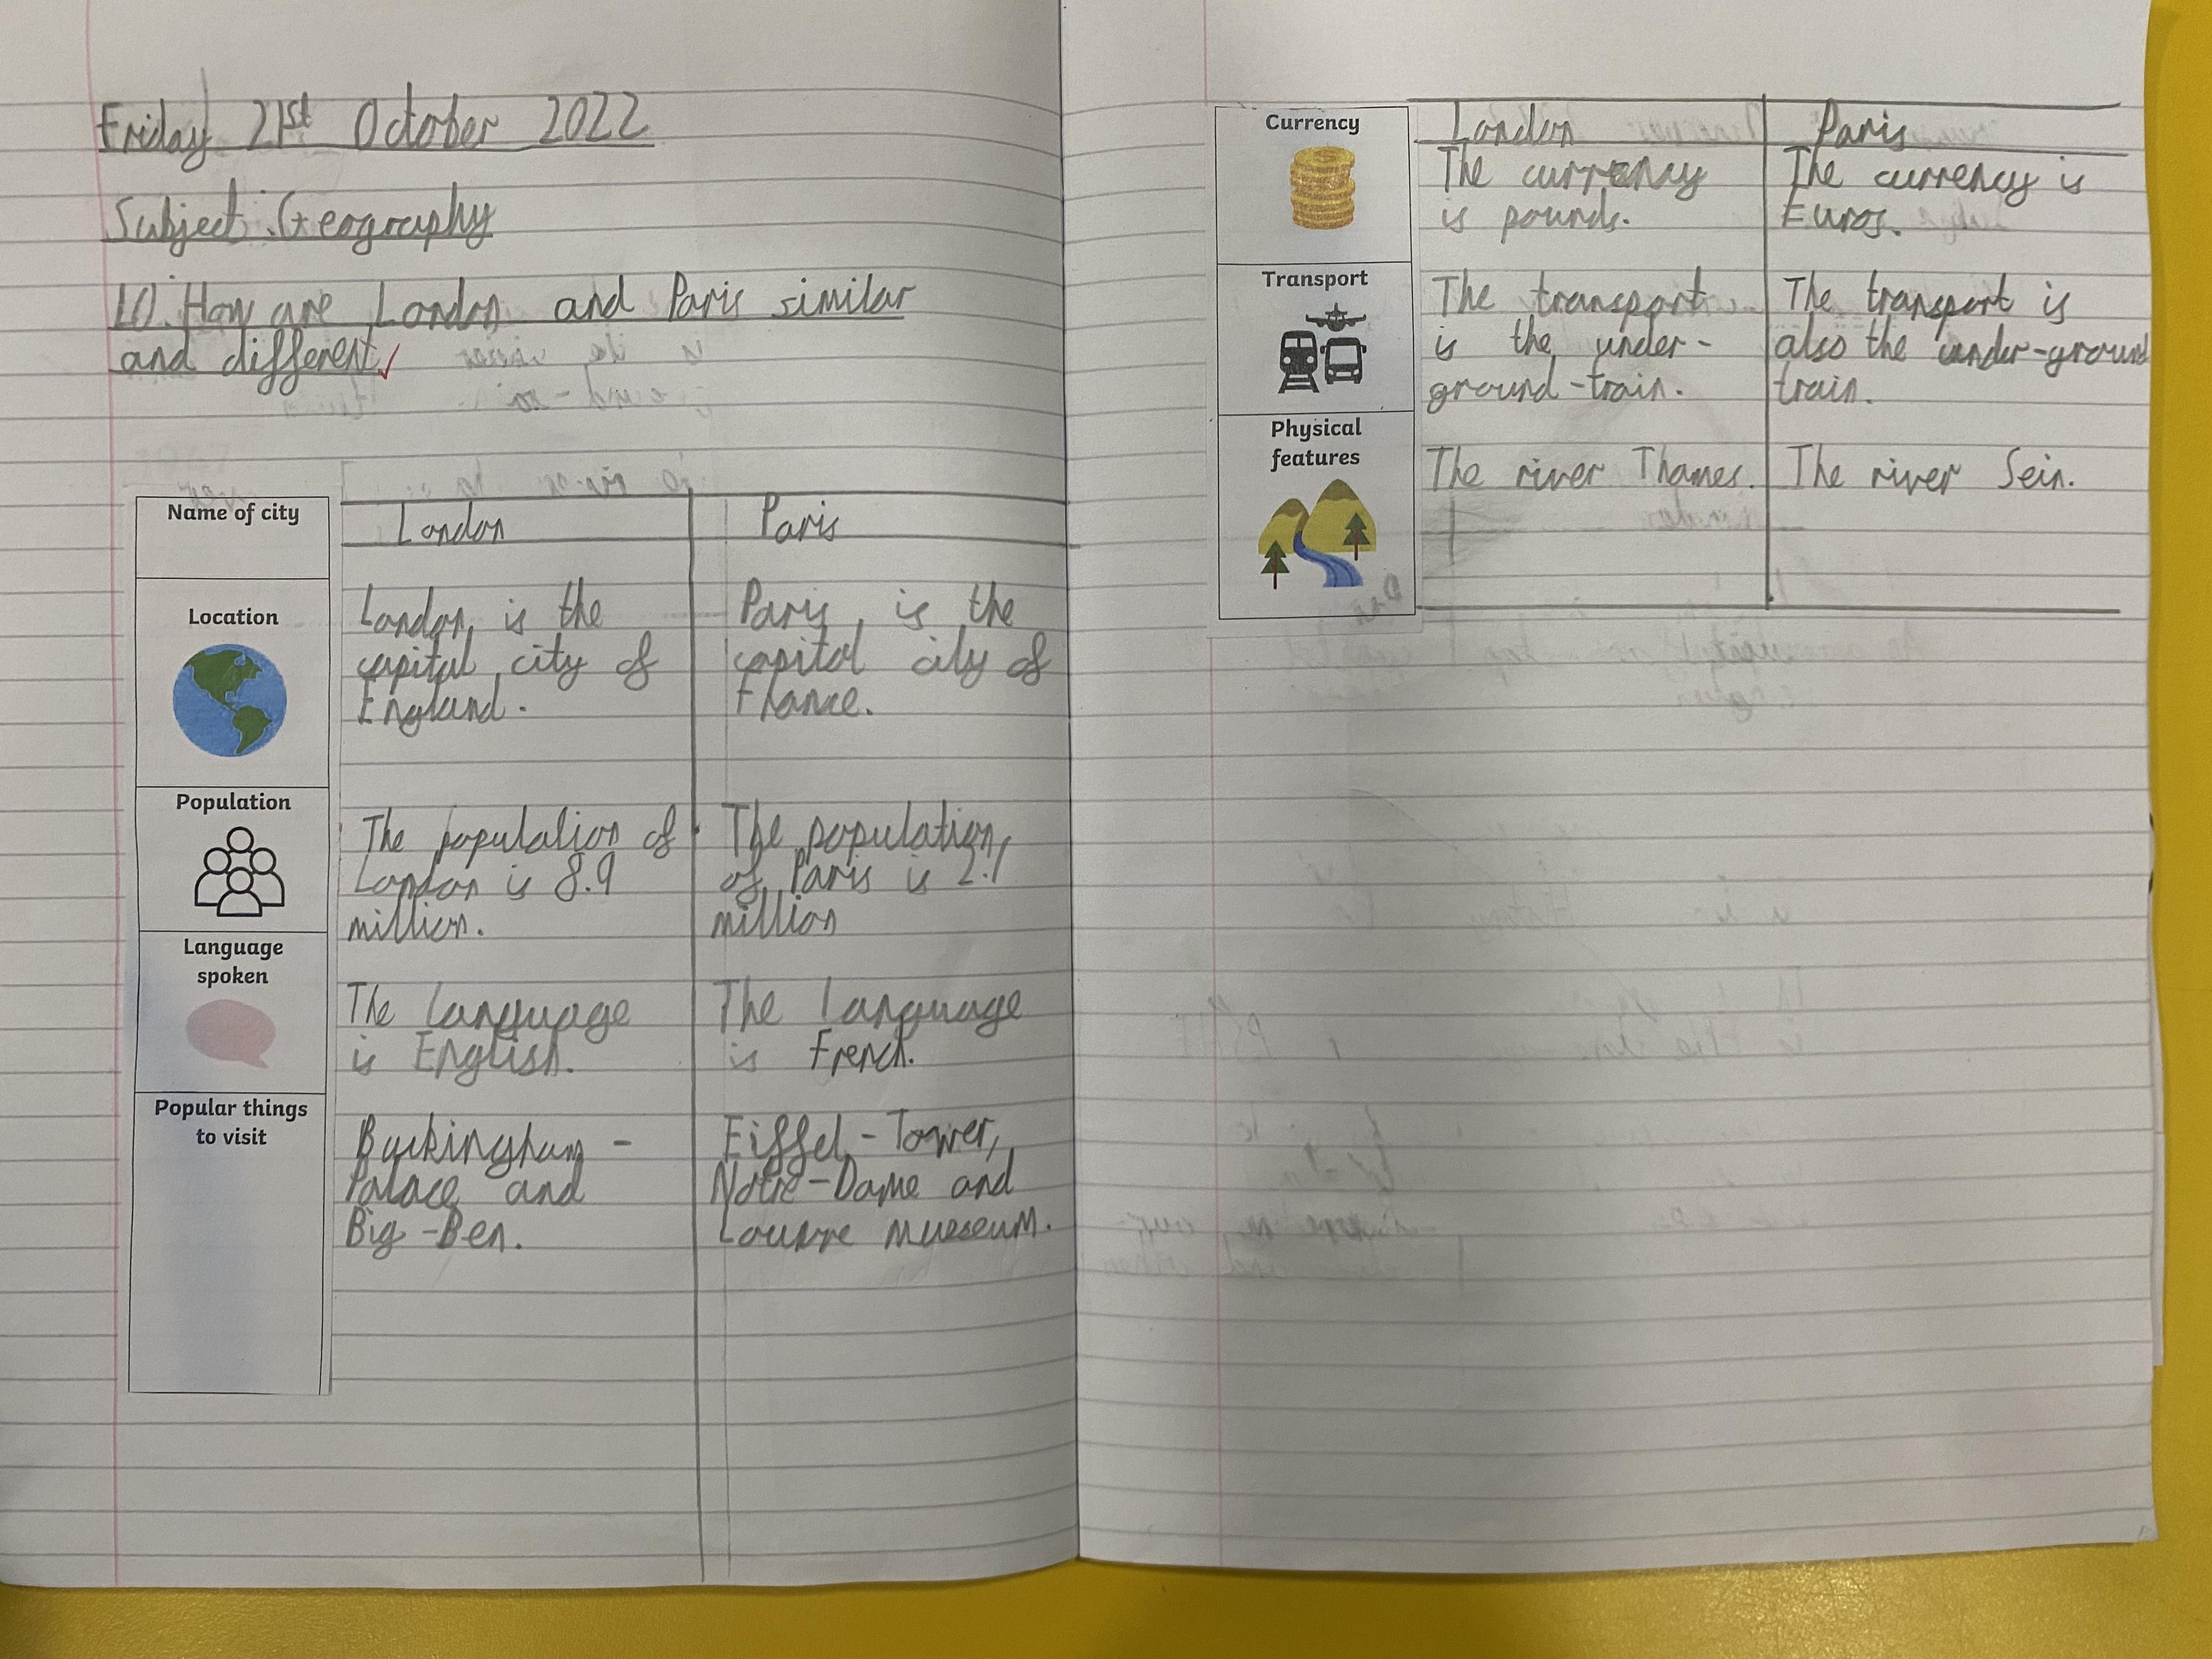 Friday 21st October 2022
Subject: Geography
LO: How are London and Paris similar
and different
Name of city
London
Paris
Location
London is the
capital city of
England.
Paris is the
capital city of
France.
Population
The population of
London is 8.9
million.
The population
of Paris is 2.1
million
Language
spoken
The language
is English.
The language
is French.
Popular things
to visit
Buckingham-
Palace and
Big-Ben.
Eiffel-Tower,
Notre-Dame and
Louvre museeum.
Currency
London
Paris
The currency
is pounds.
The currency is
Euros.
Transport
The transport
is the under-
ground-train.
The transport is
also the under-ground
train.
Physical
features
The river Thames.
The river Sein.